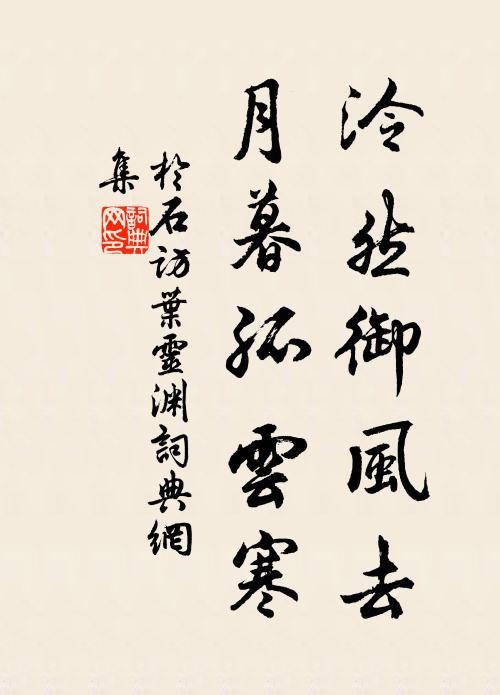 泠然御風去
月暮孤雲寒
於石訪葉靈渊詞典網
集
詞典
网印